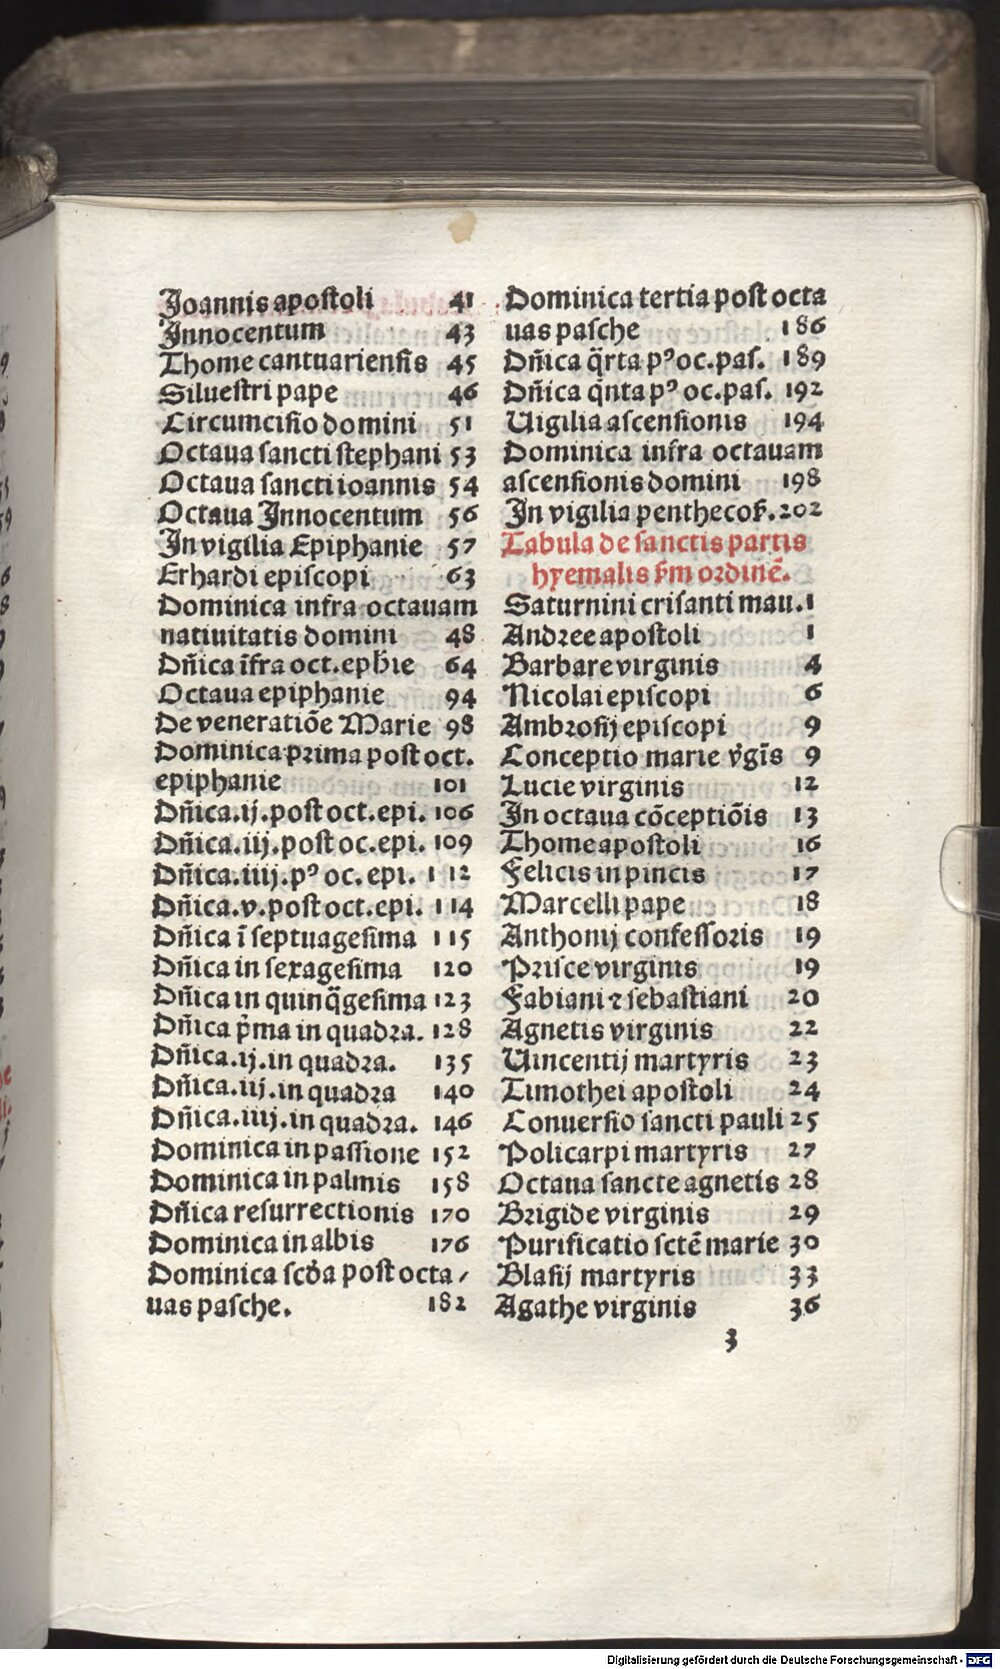 Joannis apostoli 41
Innocentum 43
Thome cantuariensis 45
Siluestri pape 46
Circumcisio domini 51
Octaua sancti stephani 53
Octaua sancti ioannis 54
Octaua Innocentum 56
In vigilia Epiphanie 57
Erhardi episcopi 63
Dominica infra octauam
natiuitatis domini 48
Dñica īfra oct. eph̄ie 64
Octaua epiphanie 94
De veneratiōe Marie 98
Dominica prima post oct.
epiphanie 101
Dñica.ij.post oct.epi. 106
Dñica.iij.post oc.epi. 109
Dñica.iiij.pꝰ oc.epi. 112
Dñica.v.post oct.epi. 114
Dñica ī septuagesima 115
Dñica in sexagesima 120
Dñica in quinq̄gesima 123
Dñica p̄ma in quadra. 128
Dñica.ij.in quadra. 135
Dñica.iij.in quadra 140
Dñica.iiij.in quadra. 146
Dominica in passione 152
Dominica in palmis 158
Dñica resurrectionis 170
Dominica in albis 176
Dominica scd̄a post octa/
uas pasche. 182
Dominica tertia post octa
uas pasche 186
Dñica q̄rta pꝰ oc.pas. 189
Dñica q̄nta pꝰ oc.pas. 192
Uigilia ascensionis 194
Dominica infra octauam
ascensionis domini 198
In vigilia penthecos̄. 202
Tabula de sanctis partis
hyemalis s̄m ordinē.
Saturnini crisanti mau. 1
Andree apostoli 1
Barbare virginis 4
Nicolai episcopi 6
Ambrosij episcopi 9
Conceptio marie v̄gīs 9
Lucie virginis 12
In octaua cōceptiōis 13
Thome apostoli 16
Felicis in pincis 17
Marcelli pape 18
Anthonij confessoris 19
Prisce virginis 19
Fabiani ⁊ sebastiani 20
Agnetis virginis 22
Uincentij martyris 23
Timothei apostoli 24
Conuersio sancti pauli 25
Policarpi martyris 27
Octana sancte agnetis 28
Brigide virginis 29
Purificatio sctē marie 30
Blasij martyris 33
Agathe virginis 36
3
Digitalisierung gefördert durch die Deutsche Forschungsgemeinschaft - DFG